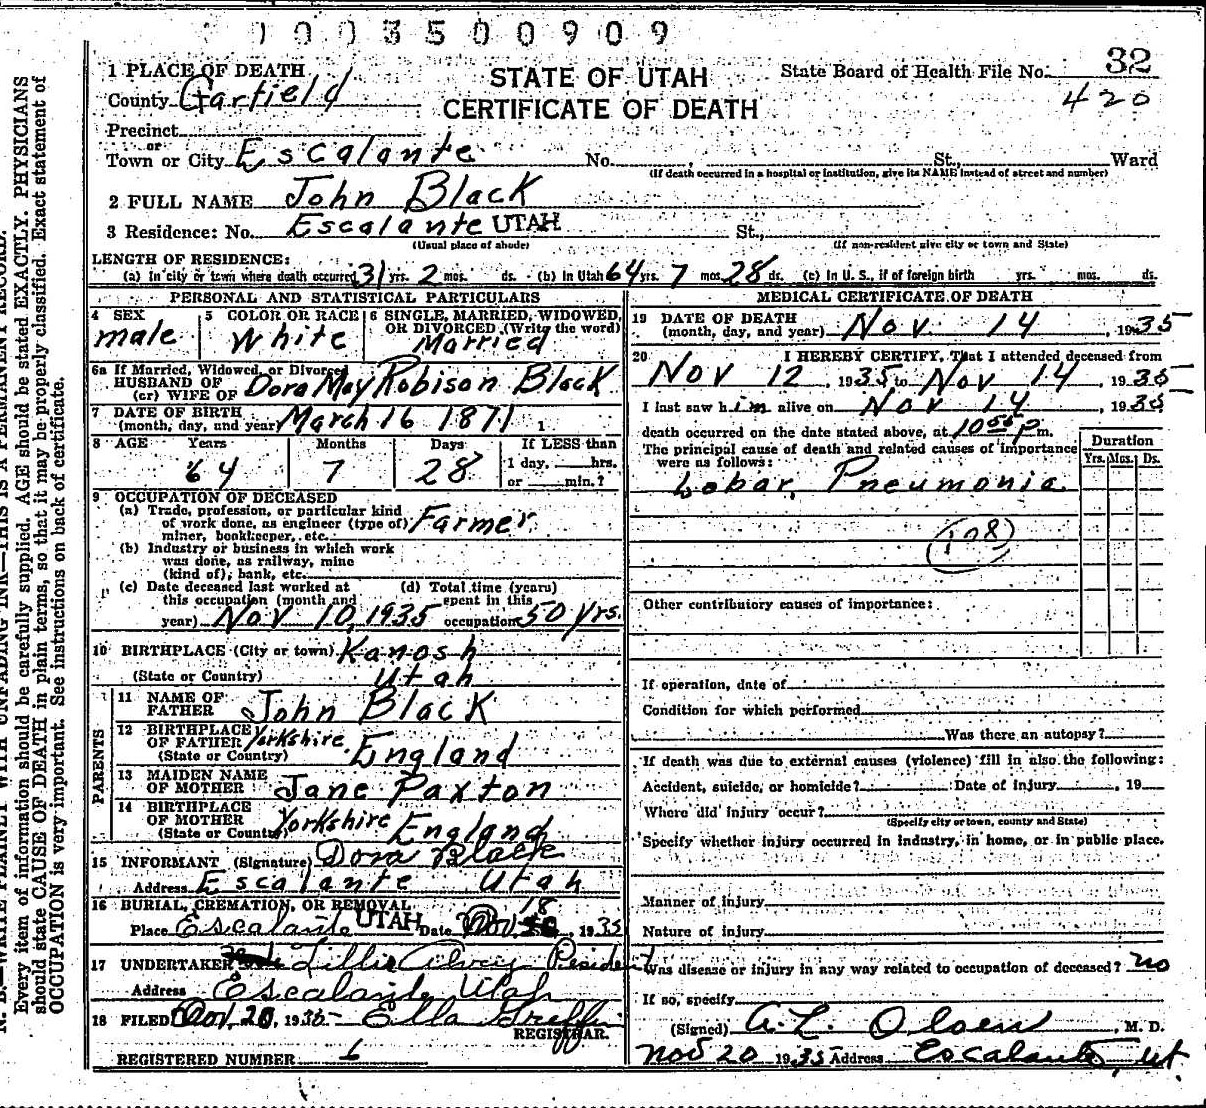 1003500909
1 PLACE OF DEATH
STATE OF UTAH
CERTIFICATE OF DEATH
State Board of Health File No. 32
420
County Garfield
Precinct
or
Town or City Escalante No. , St., Ward
(If death occurred in a hospital or institution, give its NAME instead of street and number)
2 FULL NAME John Black
3 Residence: No. Escalante UTAH St.,
(Usual place of abode) (If non-resident give city or town and State)
LENGTH OF RESIDENCE:
(a) In city or town where death occurred 31 yrs. 2 mos. ds. (b) In Utah 64 yrs. 7 mos. 28 ds. (c) In U. S., if of foreign birth yrs. mos. ds.
PERSONAL AND STATISTICAL PARTICULARS
4 SEX
male
5 COLOR OR RACE
White
6 SINGLE, MARRIED, WIDOWED,
OR DIVORCED (Write the word)
Married
6a If Married, Widowed, or Divorced
HUSBAND OF
(or) WIFE OF Dora May Robison Black
7 DATE OF BIRTH
(month, day, and year) March 16 1871
8 AGE Years Months Days If LESS than
1 day, hrs.
or min.?
64 7 28
9 OCCUPATION OF DECEASED
(a) Trade, profession, or particular kind
of work done, as engineer (type of)
miner, bookkeeper, etc. Farmer
(b) Industry or business in which work
was done, as railway, mine
(kind of); bank, etc.
(c) Date deceased last worked at
this occupation (month and
year) Nov 10, 1935
(d) Total time (years)
spent in this
occupation 50 yrs.
10 BIRTHPLACE (City or town) Kanosh
(State or Country) Utah
PARENTS
11 NAME OF
FATHER John Black
12 BIRTHPLACE
OF FATHER Yorkshire England
(State or Country)
13 MAIDEN NAME
OF MOTHER Jane Paxton
14 BIRTHPLACE
OF MOTHER Yorkshire England
(State or Country)
15 INFORMANT (Signature) Dora Black
Address Escalante Utah
16 BURIAL, CREMATION, OR REMOVAL
Place Escalante UTAH Date Nov. 18, 1935
17 UNDERTAKER Lillie Alvey
Address Escalante Utah
18 FILED Nov. 20, 1935 Ella Griffin
REGISTRAR.
REGISTERED NUMBER 6
MEDICAL CERTIFICATE OF DEATH
19 DATE OF DEATH
(month, day, and year) Nov 14, 1935
20 I HEREBY CERTIFY, That I attended deceased from
Nov 12, 1935, to Nov 14, 1935
I last saw him alive on Nov 14, 1935
death occurred on the date stated above, at 10 55 P m.
The principal cause of death and related causes of importance
were as follows:
Duration
Yrs. Mos. Ds.
Lobar Pneumonia
108
Other contributory causes of importance:
If operation, date of
Condition for which performed
Was there an autopsy?
If death was due to external causes (violence) fill in also the following:
Accident, suicide, or homicide? Date of injury , 19
Where did injury occur?
(Specify city or town, county and State)
Specify whether injury occurred in industry, in home, or in public place.
Manner of injury
Nature of injury
Was disease or injury in any way related to occupation of deceased? no
If so, specify
(Signed) A. L. Olsen, M. D.
Nov 20 1935 Address Escalante, Ut.
N. B.—WRITE PLAINLY WITH UNFADING INK—THIS IS A PERMANENT RECORD.
Every item of information should be carefully supplied. AGE should be stated EXACTLY. PHYSICIANS
should state CAUSE OF DEATH in plain terms, so that it may be properly classified. Exact statement of
OCCUPATION is very important. See instructions on back of certificate.